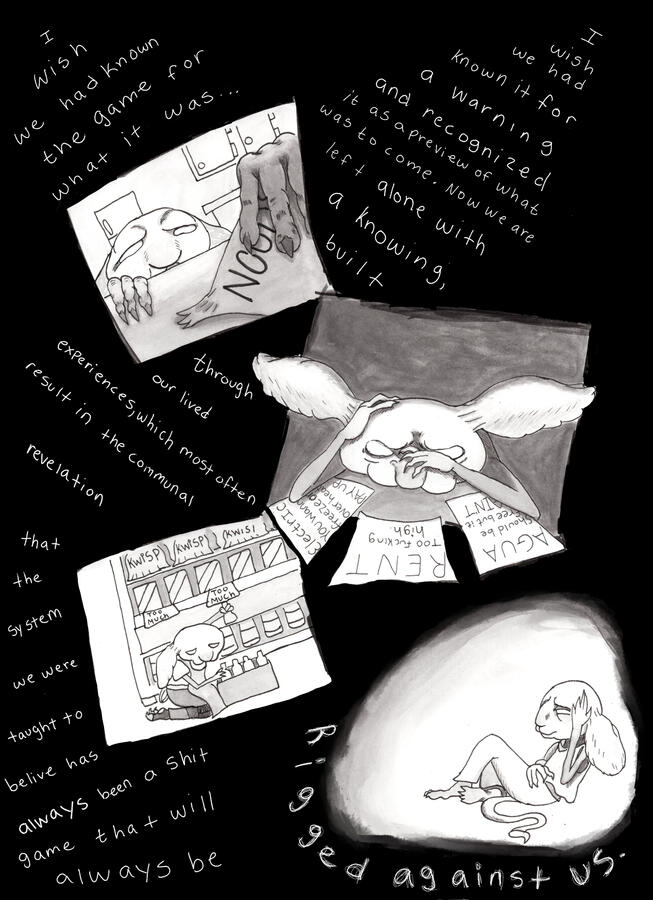 I
wish
we had known
the game for
what it was...
I
wish
we had
known it for
a warning
and recognized
it as a preview of what
was to come. Now we are
left alone with
a knowing,
built
NOON
through
our lived
experiences, which most often
result in the communal
revelation
ELECTRIC
You wan
freeze o
overhea
PAY UP
RENT
Too fucking
high.
AGUA
Should be
free but it
AINT
that
the
system
we were
taught to
belive has
always been a shit
game that will
always be
KWISP!
KWISP!
KWIS!
TOO
MUCH
TOO
MUCH
Rigged against us.